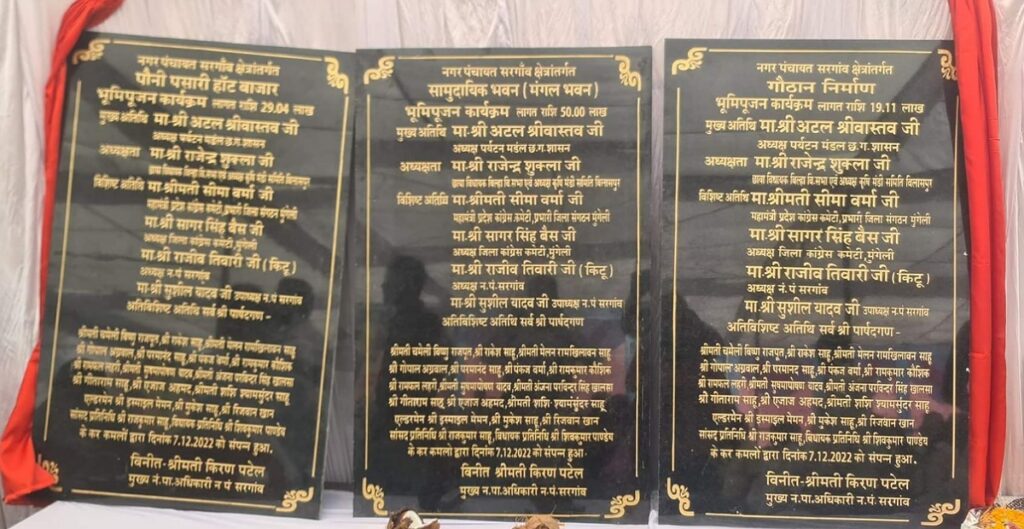 नगर पंचायत सरगाँव क्षेत्रांतर्गत
पौनी पसारी हॉट बाजार
भूमिपूजन कार्यक्रम लागत राशि 29.04 लाख
मुख्य अतिथि मा.श्री अटल श्रीवास्तव जी
अध्यक्ष पर्यटन मंडल छ.ग.शासन
अध्यक्षता मा.श्री राजेन्द्र शुक्ला जी
छाया विधायक बिल्हा वि.सभा एवं अध्यक्ष कृषि मंडी समिति बिलासपुर
विशिष्ट अतिथि मा.श्रीमती सीमा वर्मा जी
महामंत्री प्रदेश कांग्रेस कमेटी,प्रभारी जिला संगठन मुंगेली
मा.श्री सागर सिंह बैस जी
अध्यक्ष जिला कांग्रेस कमेटी,मुंगेली
मा.श्री राजीव तिवारी जी (किटू)
अध्यक्ष न.पं सरगांव
मा.श्री सुशील यादव जी उपाध्यक्ष न.पं सरगांव
अतिविशिष्ट अतिथि सर्व श्री पार्षदगण -
श्रीमती चमेली बिष्णु राजपूत,श्री राकेश साहू,श्रीमती मेलन रामखिलावन साहू
श्री गोपाल अग्रवाल,श्री परमानंद साहू,श्री पंकज वर्मा,श्री रामकुमार कौशिक
श्री रामफल लहरी,श्रीमती सुषमापोषण यादव,श्रीमती अंजना परविन्दर सिंह खालसा
श्री गीताराम साहू,श्री एजाज अहमद,श्रीमती शशि श्यामसुंदर साहू
एल्डरमेन श्री इस्माइल मेमन,श्री मुकेश साहू,श्री रिजवान खान
सांसद प्रतिनिधि श्री राजकुमार साहू,विधायक प्रतिनिधि श्री शिवकुमार पाण्डेय
के कर कमलो द्वारा दिनांक 7.12.2022 को संपन्न हुआ.
विनीत-श्रीमती किरण पटेल
मुख्य न.पा.अधिकारी न पं सरगांव
नगर पंचायत सरगाँव क्षेत्रांतर्गत
सामुदायिक भवन (मंगल भवन)
भूमिपूजन कार्यक्रम लागत राशि 50.00 लाख
मुख्य अतिथि मा.श्री अटल श्रीवास्तव जी
अध्यक्ष पर्यटन मंडल छ.ग.शासन
अध्यक्षता मा.श्री राजेन्द्र शुक्ला जी
छाया विधायक बिल्हा वि.सभा एवं अध्यक्ष कृषि मंडी समिति बिलासपुर
विशिष्ट अतिथि मा.श्रीमती सीमा वर्मा जी
महामंत्री प्रदेश कांग्रेस कमेटी,प्रभारी जिला संगठन मुंगेली
मा.श्री सागर सिंह बैस जी
अध्यक्ष जिला कांग्रेस कमेटी,मुंगेली
मा.श्री राजीव तिवारी जी (किटू)
अध्यक्ष न.पं सरगांव
मा.श्री सुशील यादव जी उपाध्यक्ष न.पं सरगांव
अतिविशिष्ट अतिथि सर्व श्री पार्षदगण
श्रीमती चमेली बिष्णु राजपूत,श्री राकेश साहू,श्रीमती मेलन रामखिलावन साहू
श्री गोपाल अग्रवाल,श्री परमानंद साहू,श्री पंकज वर्मा,श्री रामकुमार कौशिक
श्री रामफल लहरी,श्रीमती सुषमापोषण यादव,श्रीमती अंजना परविन्दर सिंह खालसा
श्री गीताराम साहू श्री एजाज अहमद,श्रीमती शशि श्यामसुंदर साहू
एल्डरमेन श्री इस्माइल मेमन,श्री मुकेश साहू,श्री रिजवान खान
सांसद प्रतिनिधि श्री राजकुमार साहू,विधायक प्रतिनिधि श्री शिवकुमार पाण्डेय
के कर कमलो द्वारा दिनांक 7.12.2022 को संपन्न हुआ.
विनीत श्रीमती किरण पटेल
मुख्य न.पा.अधिकारी न.पं.सरगांव
नगर पंचायत सरगांव क्षेत्रांतर्गत
गौठान निर्माण
भूमिपूजन कार्यक्रम लागत राशि 19.11 लाख
मुख्य अतिथि मा.श्री अटल श्रीवास्तव जी
अध्यक्ष पर्यटन मंडल छ.ग.शासन
अध्यक्षता मा.श्री राजेन्द्र शुक्ला जी
छाया विधायक बिल्हा वि.सभा एवं अध्यक्ष कृषि मंडी समिति बिलासपुर
विशिष्ट अतिथि मा.श्रीमती सीमा वर्मा जी
महामंत्री प्रदेश कांग्रेस कमेटी,प्रभारी जिला संगठन मुंगेली
मा.श्री सागर सिंह बैस जी
अध्यक्ष जिला कांग्रेस कमेटी,मुंगेली
मा.श्री राजीव तिवारी जी (किटू)
अध्यक्ष न.पं सरगांव
मा.श्री सुशील यादव जी उपाध्यक्ष न.पं सरगांव
अतिविशिष्ट अतिथि सर्व श्री पार्षदगण -
श्रीमती चमेली बिष्णु राजपूत,श्री राकेश साहू,श्रीमती मेलन रामखिलावन साहू
श्री गोपाल अग्रवाल,श्री परमानंद साहू,श्री पंकज वर्मा,श्री रामकुमार कौशिक
श्री रामफल लहरी,श्रीमती सुषमापोषण यादव,श्रीमती अंजना परविन्दर सिंह खालसा
श्री गीताराम साहू,श्री एजाज अहमद,श्रीमती शशि श्यामसुंदर साहू
एल्डरमेन श्री इस्माइल मेमन,श्री मुकेश साहू,श्री रिजवान खान
सांसद प्रतिनिधि श्री राजकुमार साहू,विधायक प्रतिनिधि श्री शिवकुमार पाण्डेय
के कर कमलो द्वारा दिनांक 7.12.2022 को संपन्न हुआ.
विनीत-श्रीमती किरण पटेल
मुख्य न.पा.अधिकारी न.पं. सरगांव